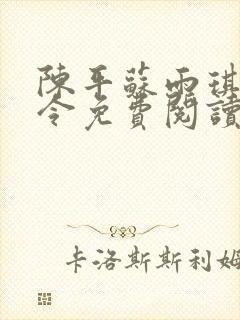 陳平蘇雨琪
令免費閱讀
卡洛斯斯利姆